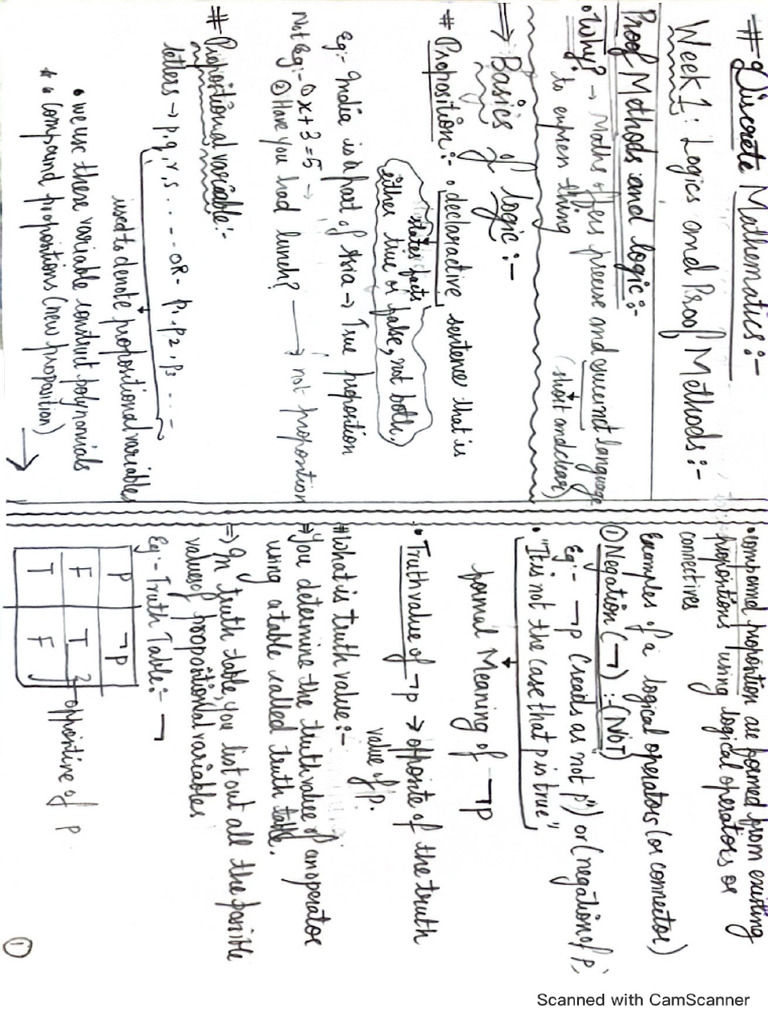 # Discrete Mathematics:-
Week 1: Logics and Proof Methods:-
Proof Methods and logic:-
• Why? → Maths offers precise and succinct language
(short and clear)
to express thing
⇒ Basics of logic:-
# Proposition:- • declarative sentence that is
states facts
either true or false, not both.
Eg:- India is a part of Asia → True proposition
Not Eg:- ① x+3=5 →
② Have you had lunch? → not proposition
# Propositional variable:-
letters → p,q,r,s ..... -OR- p1, p2, p3 ....
used to denote propositional variables
• we use these variable construct polynomials
* • Compound propositions (new proposition)
• compound proposition are formed from existing
propositions using logical operators or
connectives
Examples of a logical operators (or connector)
① Negation (¬) :- (NOT)
Eg:- ¬p (reads as "not p") or (negation of p)
• "It is not the case that p is true"
formal Meaning of ¬p
• Truth value of ¬p → opposite of the truth
value of p.
# What is truth value:-
⇒ You determine the truth value of an operator
using a table called truth table.
⇒ In truth table, you list out all the possible
values of propositional variables
Eg:- Truth Table:- ¬
P ¬P
F T
T F
opposite of p
①
Scanned with CamScanner